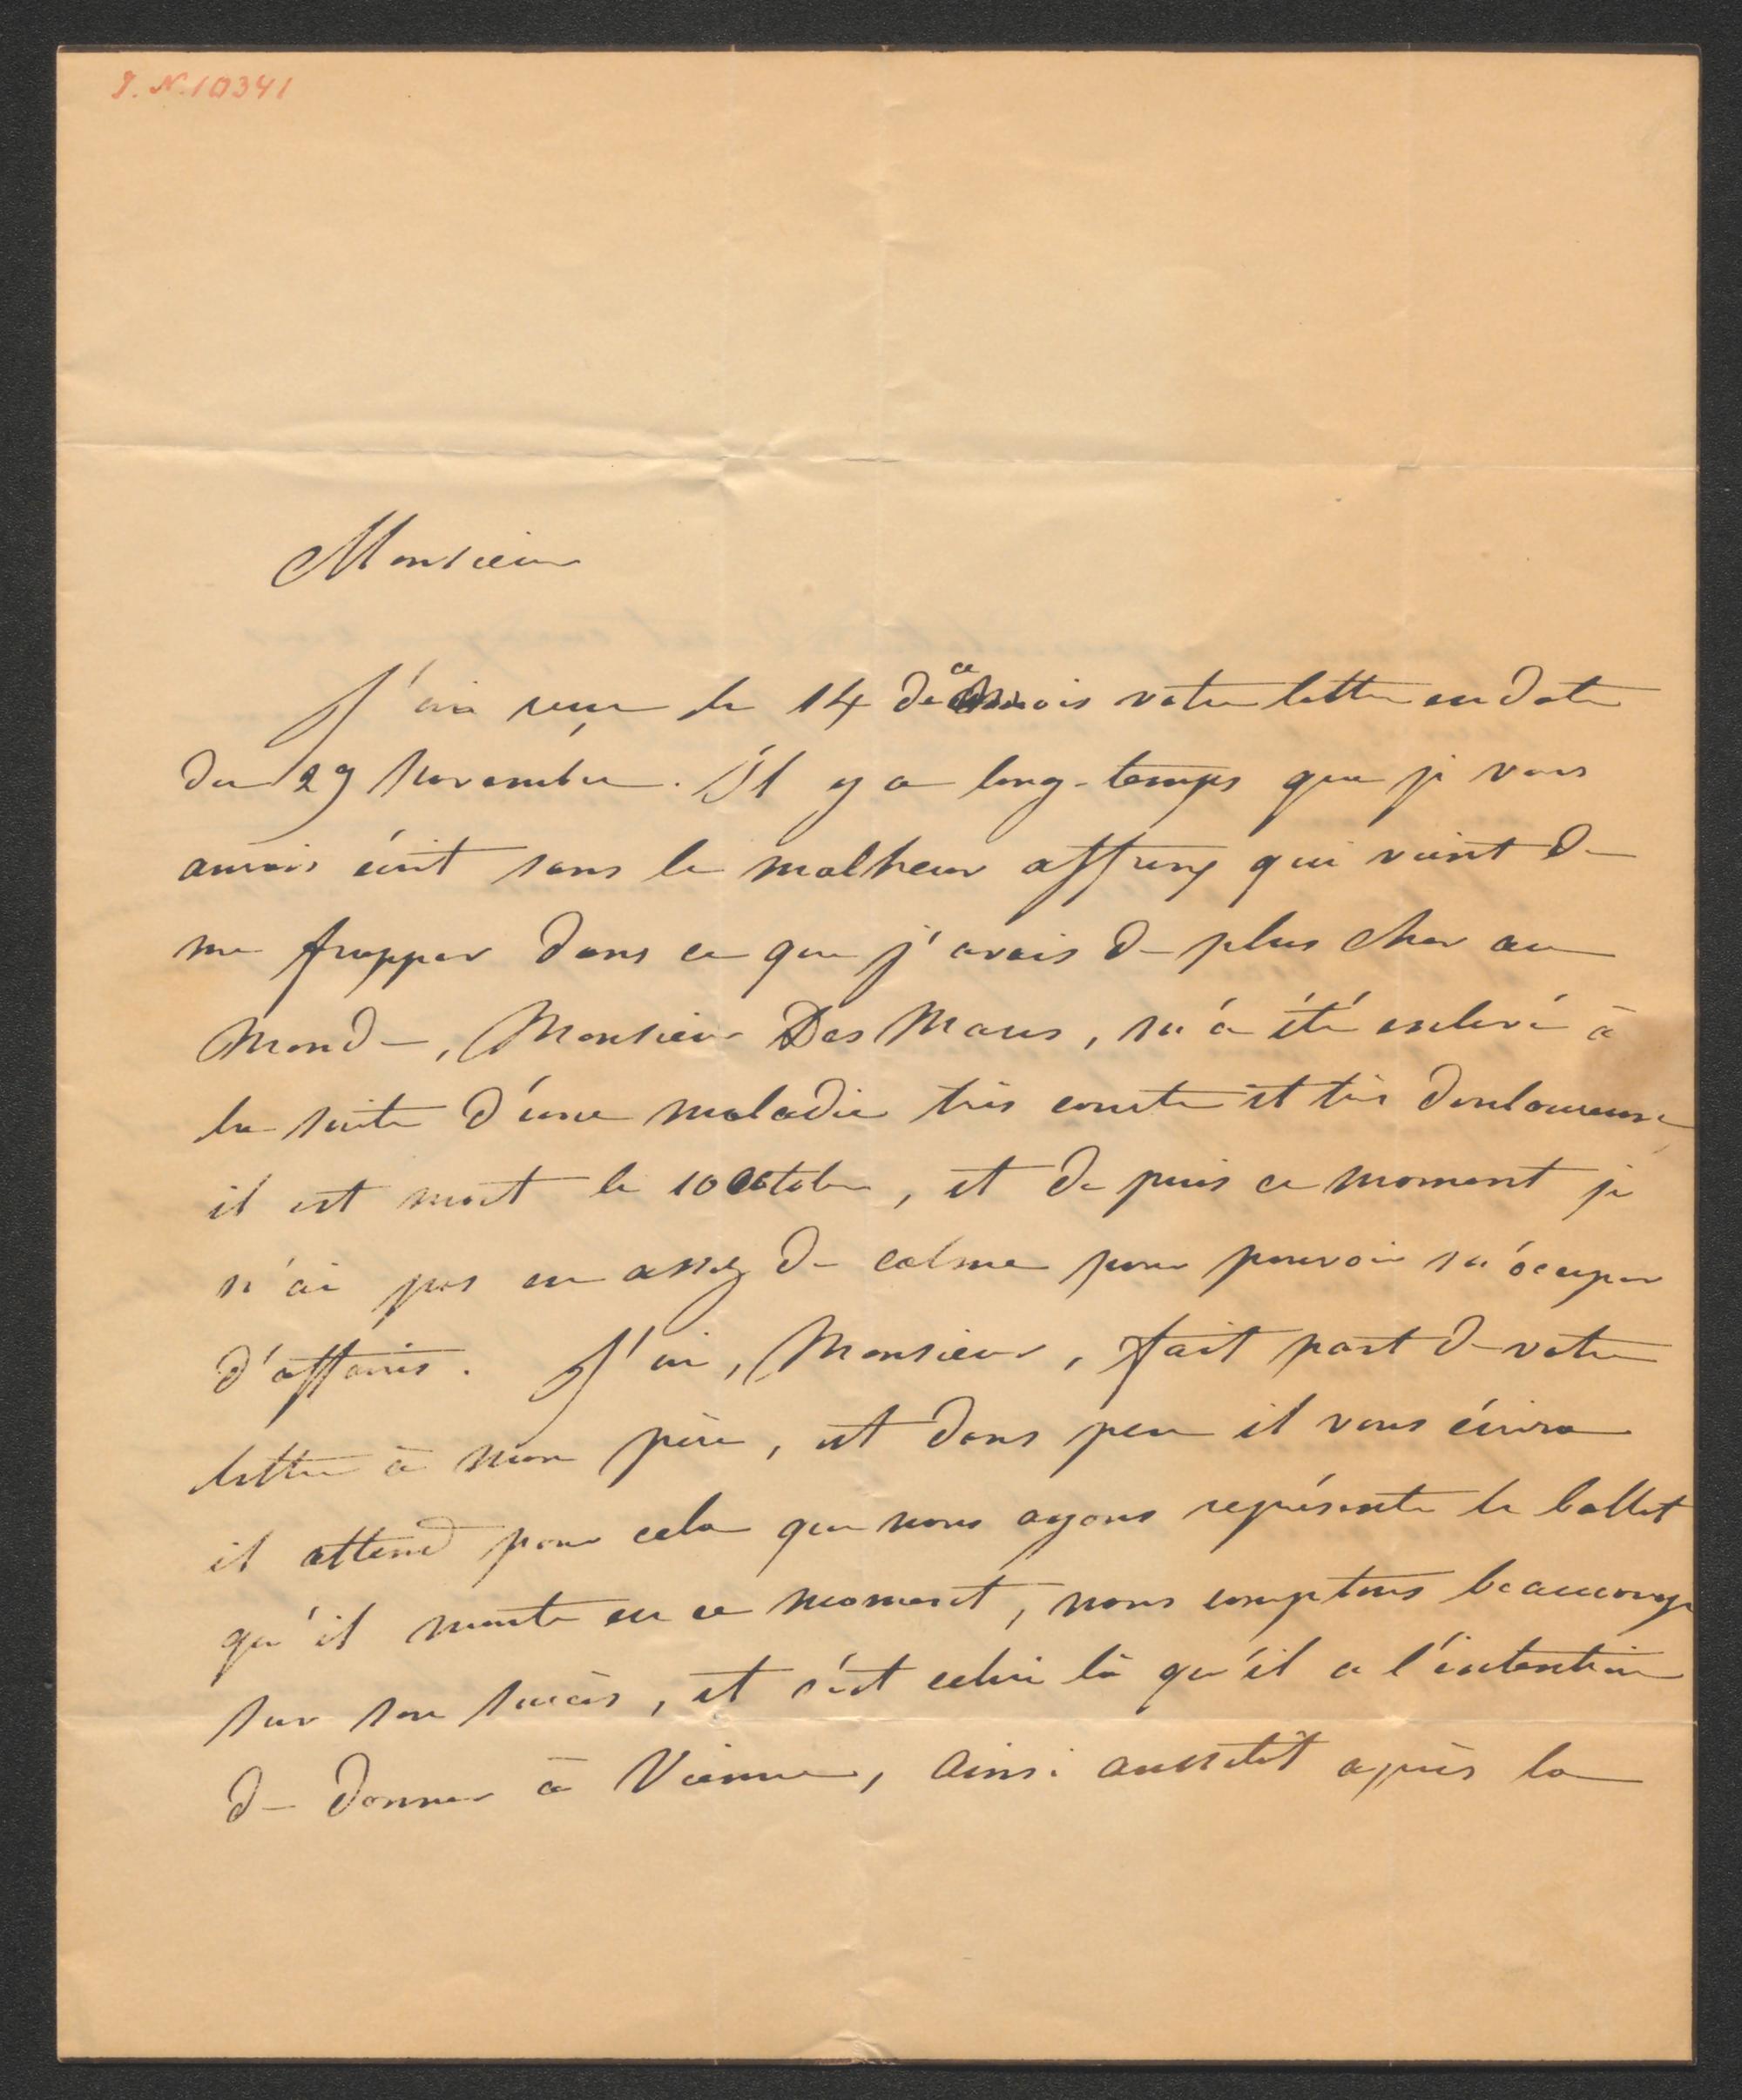 I. N. 10341
Monsieur
J'ai reçu le 14 de ce mois votre lettre en date
du 29 Novembre. Il y a long-temps que je vous
aurais écrit sans le malheur affreux qui vient de
me frapper dans ce que j'avais de plus cher au
monde, Monsieur Des Mares, m'a été enlevé à
la suite d'une maladie très courte et très douloureuse
il est mort le 10 Octobre, et de puis ce moment je
n'ai pas eu assez de calme pour pouvoir m'occuper
d'affaires. J'ai, Monsieur, fait part de votre
lettre à mon père, et dans peu il vous écrira
il attend pour cela que nous ayons représenté le ballet
qu'il monte en ce moment, nous comptons beaucoup
sur son succès, et c'est celui là qu'il a l'intention
de donner à Vienne, ainsi aussitôt après la